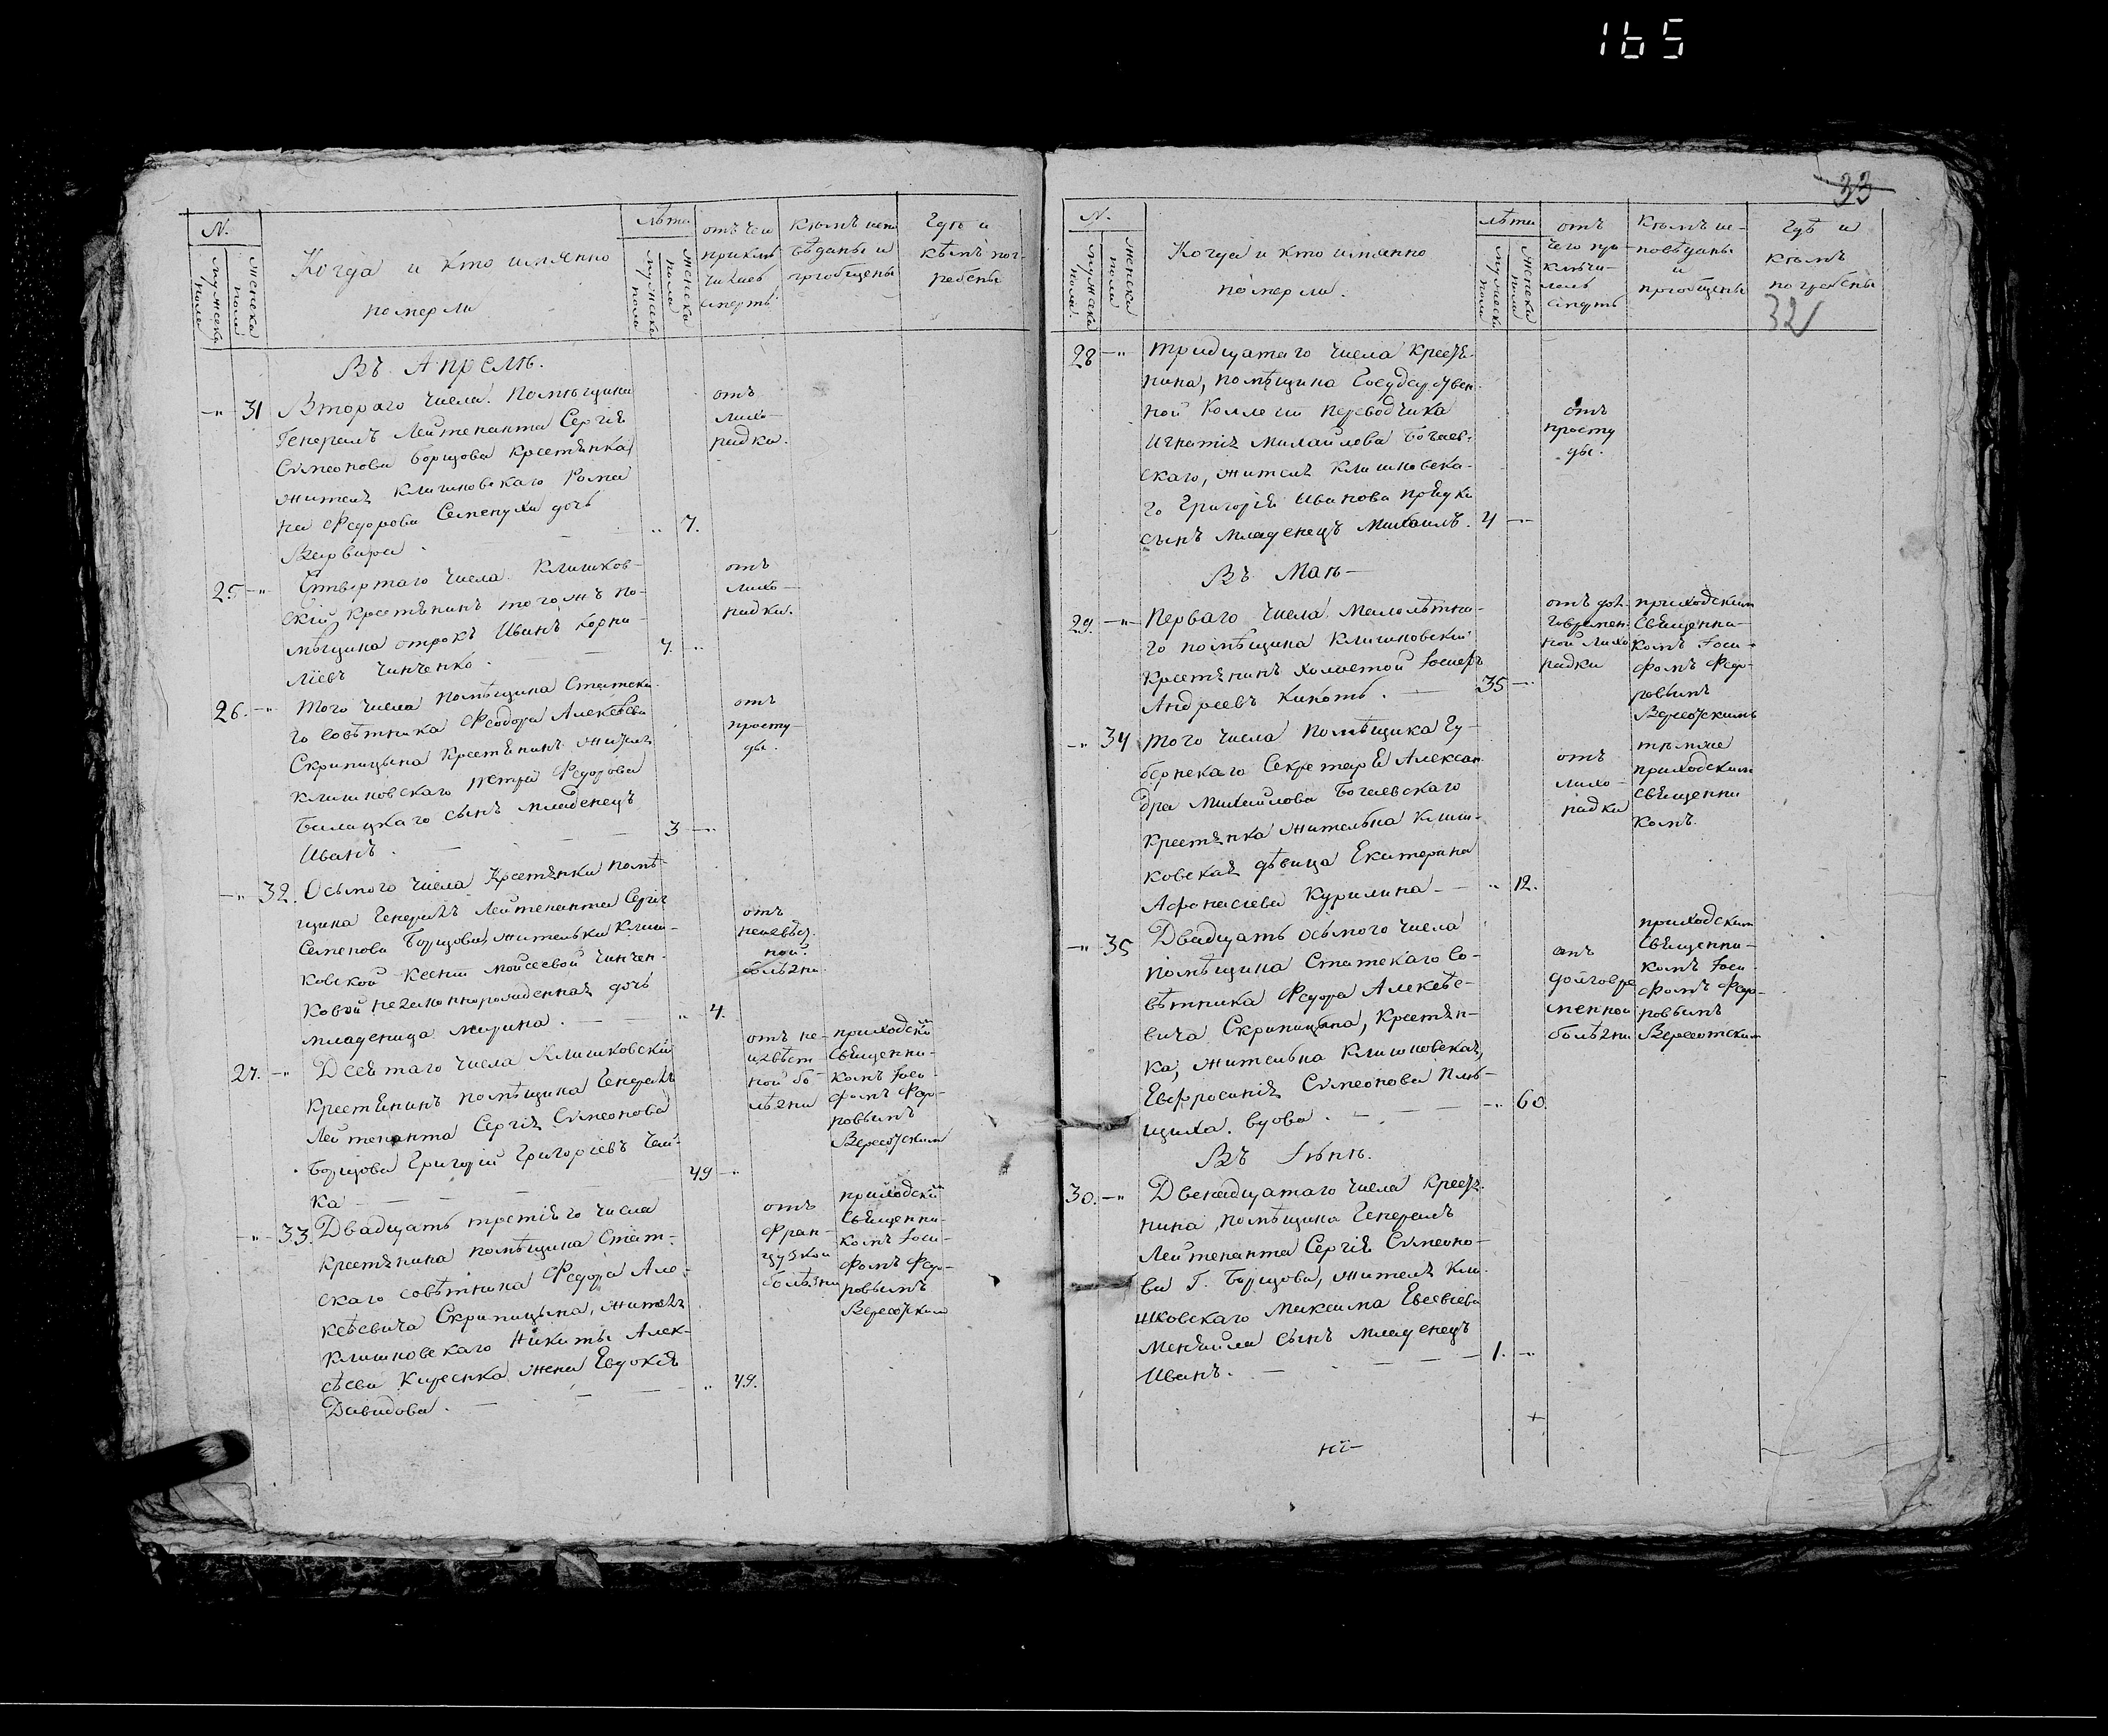 165
N.
мужеска пола
женска пола
Когда и кто имянно
померли
лѣта
мужеска пола
женска пола
отъ чего
приклю
чилась
смерть
Кѣмъ испо
вѣданы и
приобщены
Гдѣ и
кѣмъ пог-
ребены
Въ Апрелѣ.
31 Втораго числа. Помѣщика
Генералъ Лейтенанта Сергія
Сѵмеонова Борщова крестянка,
жителя клишковскаго Рома
на Федорова Семенухи дочь
Варвара. 7.
отъ
лихо-
радки.
25 Четвертаго числа Клишков-
скій крестянинъ того жъ по-
мѣщика отрокъ Иванъ Корни-
ліевъ Чинченко. 7.
отъ
лихо-
радки.
26. Того числа помѣщика Статска
го совѣтника Феодора Алексѣева
Скрипицына крестянинъ жителя
клишковскаго Петра Федорова
Билицкаго сынъ младенецъ
Иванъ. 3
отъ
просту-
ды.
32. Осьмого числа Крестянки помѣ-
щика Генералъ Лейтенанта Сергія
Семенова Борщова, жительки Клиш-
ковской Ксении Мойсеевой Чинчен-
ковой незаконнорожденная дочь
младеница Марина. 4.
отъ
неизвѣст
ной
болѣзни.
27. Девятаго числа Клишковскій
крестянинъ помѣщика Генералъ
Лейтенанта Сергія Сѵмеонова
Борщова Григорій Григоріевъ Чай-
ка 49
отъ не-
извѣст
ной бо-
лѣзни
приходскій
Священни-
комъ Іоси-
фомъ Федо-
ровымъ
Вересотским
33. Двадцать третіяго числа
крестянина помѣщика Стат-
скаго совѣтника Федора Але-
ксѣевича Скрипицына, жителя
клишковскаго Никиты Алек-
сѣева Киресика жена Евдокія
Давидова. 49.
отъ
фран-
цузкой
болѣзни
приходскій
Священни-
комъ Іоси-
фомъ Федо-
ровымъ
Вересотским
33
N.
мужеска пола.
женска пола
Когда и кто имянно
померли.
лѣта
мужеска пола
женска пола
отъ
чего при
ключи-
лась
смерть
Кѣмъ ис-
повѣданы
и
приобщены
Гдѣ и
кѣмъ
погребены
32
28 тридцатаго числа крестя-
нина, помѣщика Государствен-
ной Коллегии переводчика
Игнатія Михайлова Богаев-
скаго, жителя клишковска-
го Григорія Иванова Прядки
сынъ младенецъ Михаилъ. 4
отъ
просту
ды.
Въ Маѣ
29. Перваго числа Малолѣтня-
го помѣщика клишковскій
крестянинъ холостой Іосифъ
Андреевъ Кикоть. 35
отъ дол-
говремен-
ной лихо
радки
приходским
Священни-
комъ Іоси-
фомъ Федо-
ровымъ
Вересотскимъ
34 Того числа помѣщика Гу-
бернскаго Секретаря Алексан
дра Михайлова Богаевскаго
крестянка жителька клиш-
ковская дѣвица Екатерина
Афанасіева Курилина 12.
отъ
лихо-
радки
тѣмже
приходским
священни
комъ.
35 Двадцать осьмого числа
помѣщика Статскаго Со-
вѣтника Федора Алексѣе-
вича Скрипицына, крестян-
ка, жителька клишковская,
Евфросинія Сѵмеонова Пль-
щиха. вдова. 60.
отъ
долговре
менной
болѣзни
приходским
Священни-
комъ Іоси-
фомъ Федо-
ровымъ
Вересотским
Въ Іюнѣ.
30. Двенадцатаго числа крестя-
нина, помѣщика Генералъ
Лейтенанта Сергія Сѵмеоно-
ва Г. Борщова, жителя Кли-
шковскаго Максима Евсевіева
Менайла сынъ младенецъ
Иванъ. 1.